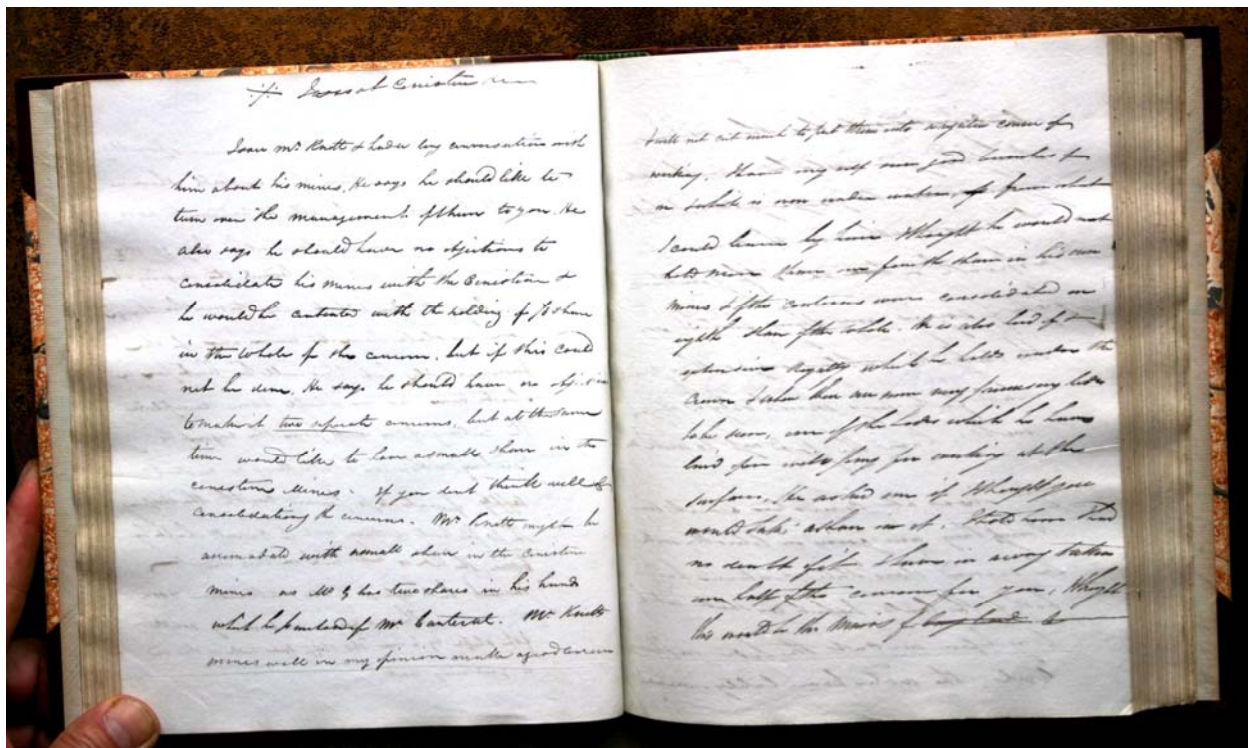 at Coniston
I saw Mr Knott & had a long conversation with
him about his mines, He says he should like to
turn over the management of them to you. He
also says he should have no objections to
consolidate his mines with the Coniston &
he would be contented with the holding of share
in the whole of the concern, but if this could
not be done, He says he should have no
to make it two separate concerns, but at the same
time would like to have a small share in the
Coniston Mines. If you dont think well of
Consolidationg the concerns. Mr Knott might be
accomadated with a small share in the Coniston
mines as Mr has two shares in his hands
which he purchased of Mr Mr Knotts
mines will in my opinion make a good concern
& will not cost much to put them into a regular course of
working. I have my self seen good bunches of
in which is now under water, from what
I could learn by him I thought he would not
hold more than one fourth share in his own
mines & if the concerns were consolidated one
eighth share of the whole. He is also lord of
extensive Royalty which he holds under the
Crown & when there are some very promising lodes
to be seen, one of the lodes which he have
laid open very for working at the
surface, He asked me if I thought you
would take a share in it. I told him I had
no doubt of it I have in a way taken
one half of the concern for you, I thought
this would be the means of